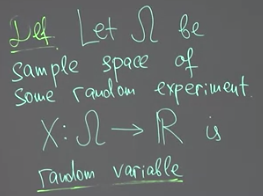 Def. Let Ω be
sample space of
some random experiment.
X: Ω → ℝ is
random variable